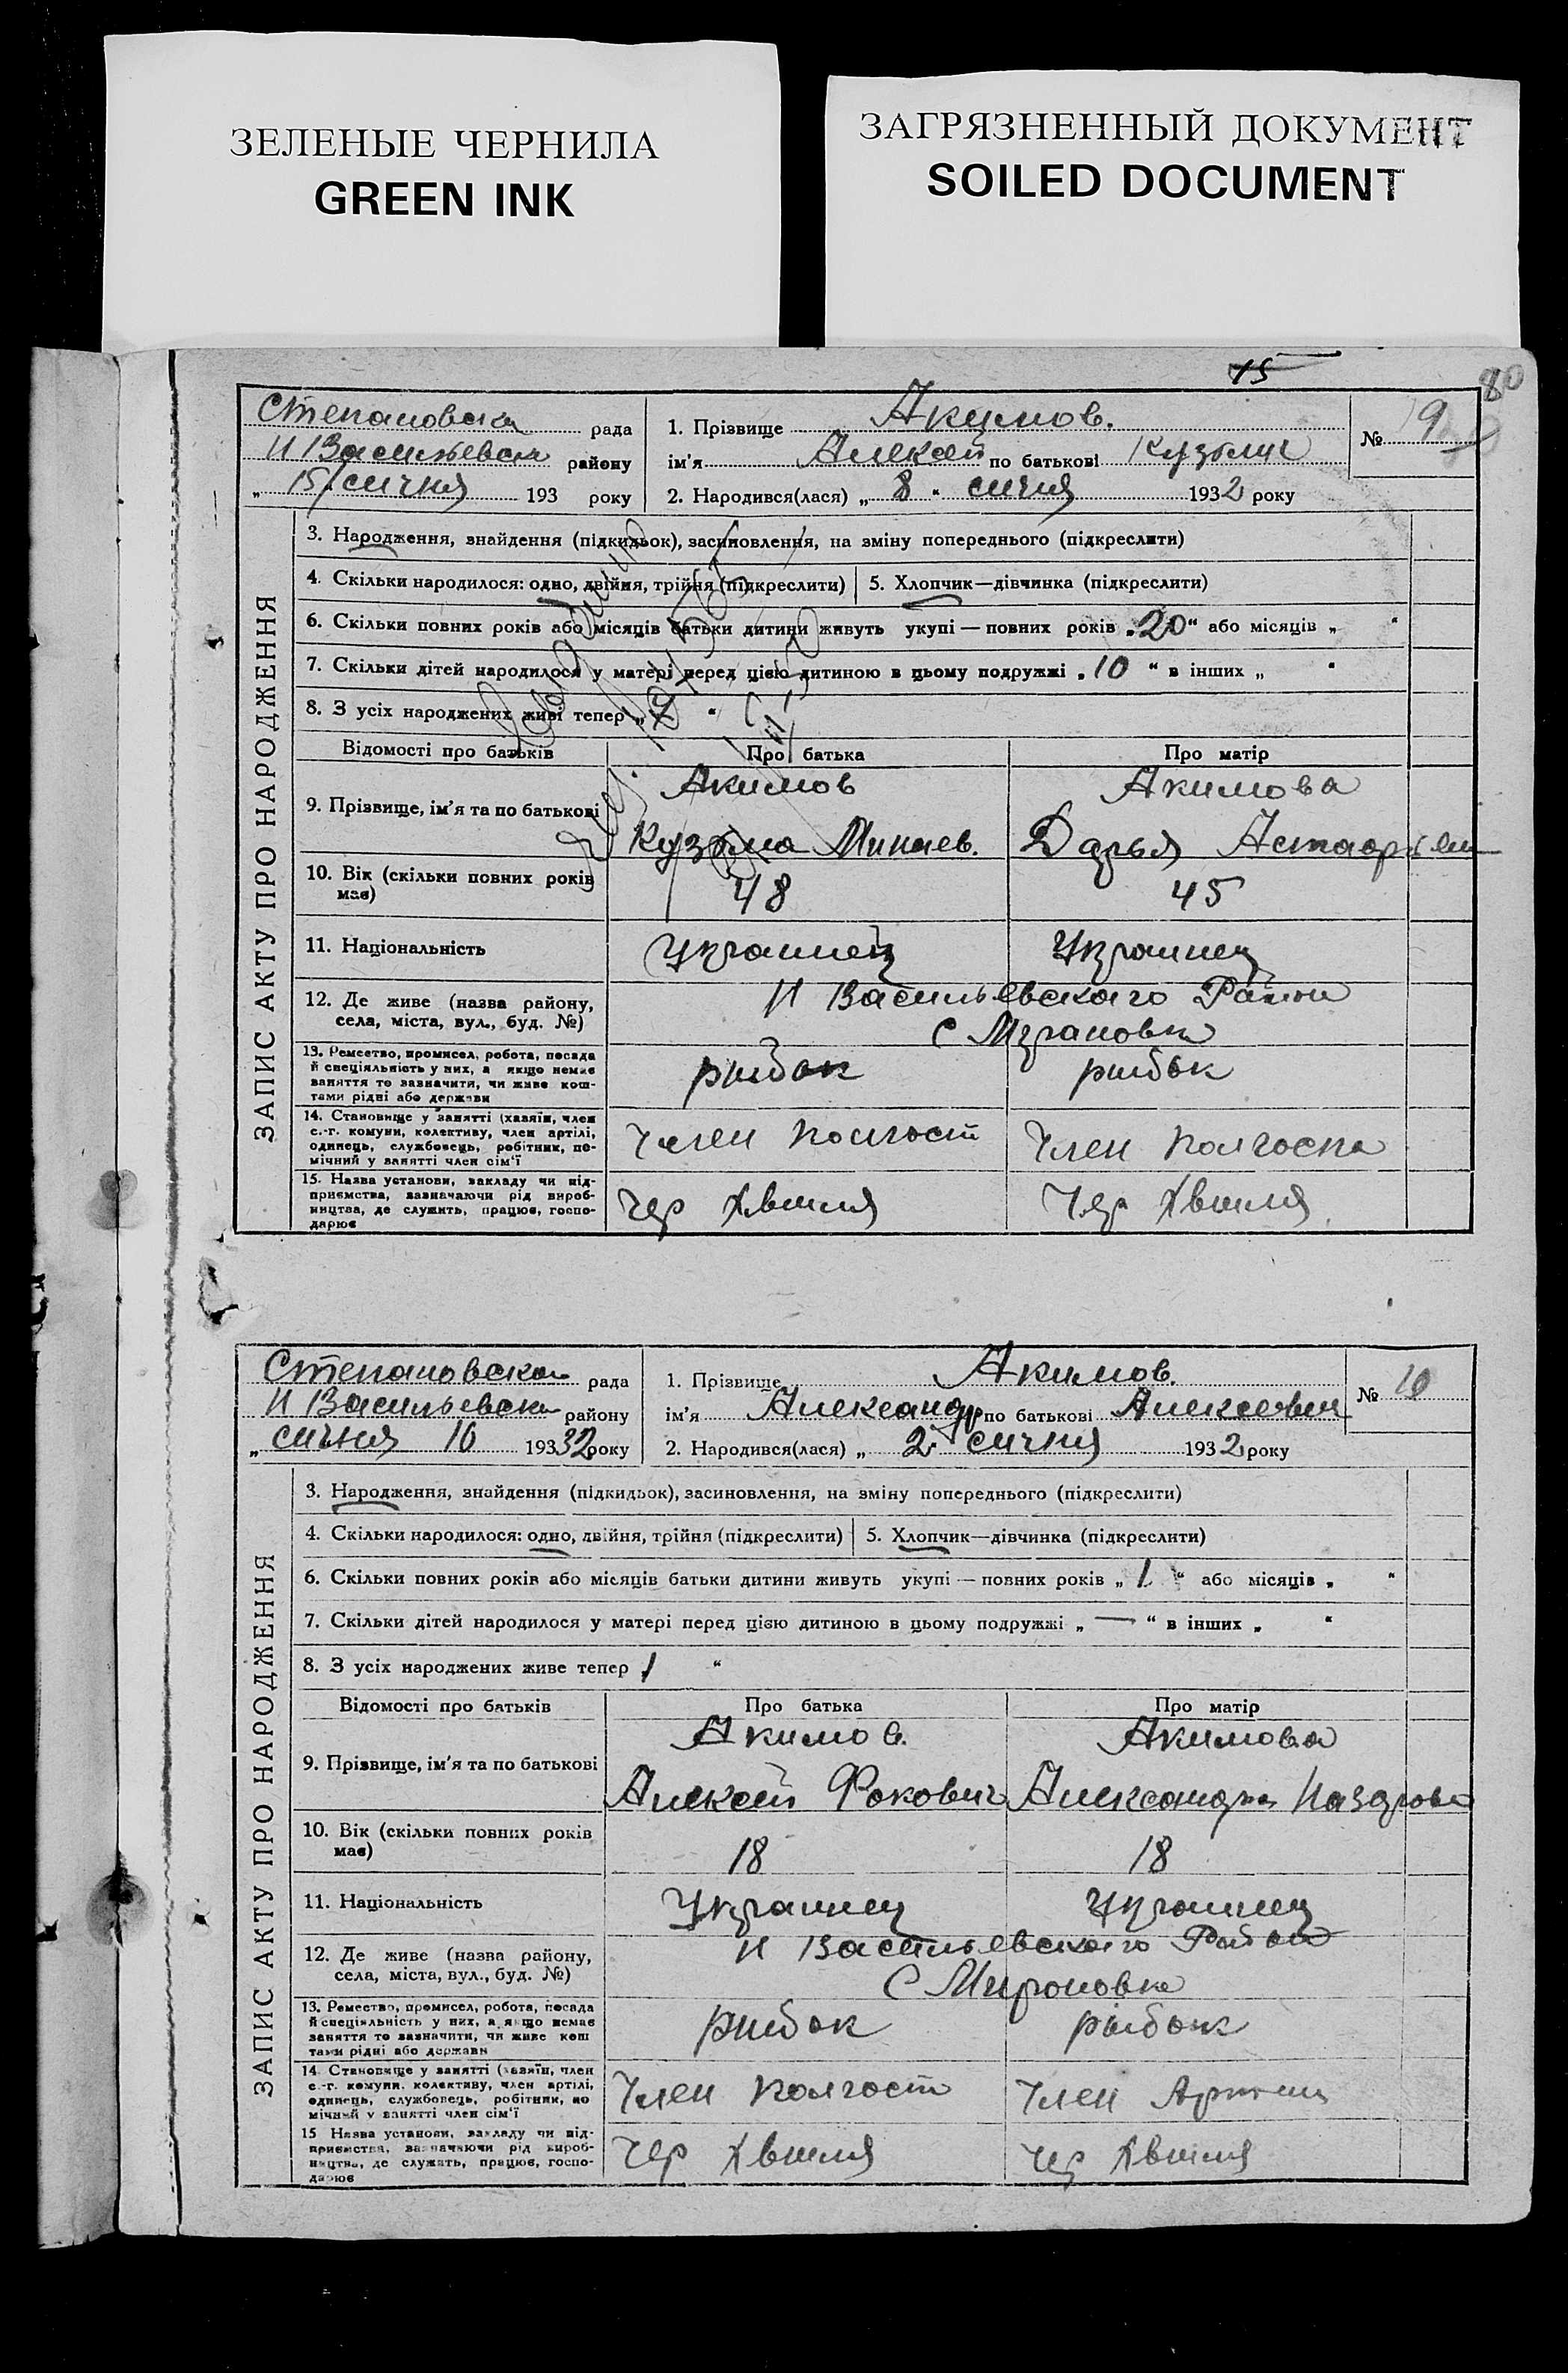 ЗЕЛЕНЫЕ ЧЕРНИЛА
GREEN INK
ЗАГРЯЗНЕННЫЙ ДОКУМЕНТ
SOILED DOCUMENT
15
80
Степановска рада
И Васильевски району
„ 15/сичня 193 року
1. Прізвище Акимов.
ім'я Алексей по батькові Кузьмич
2. Народився(лася) „ 8 “ сичня 1932 року
№ 9
ЗАПИС АКТУ ПРО НАРОДЖЕННЯ
3. Народження, знайдення (підкидьок), засиновлення, на зміну попереднього (підкреслити)
4. Скільки народилося: одно, двійня, трійня (підкреслити)
5. Хлопчик—дівчинка (підкреслити)
6. Скільки повних років або місяців батьки дитини живуть укупі — повних років „ 20 “ або місяців „ “
7. Скільки дітей народилося у матері перед цією дитиною в цьому подружжі „ 10 “ в інших „ “
8. З усіх народжених живі тепер „ “
Відомості про батьків
Про батька
Про матір
9. Прізвище, ім'я та по батькові
Акимов
Кузьма Минаев.
Акимова
Дарья
10. Вік (скільки повних років
має)
48
45
11. Національність
Украинец
Украинец
12. Де живе (назва району,
села, міста, вул., буд. №)
И Васильевскаго Район
С Мироновка
13. Ремество, промисел, робота, посада
й спеціяльність у них, а якщо немає
заняття то зазначити, чи живе кош-
тами рідні або держави
рыбак
рыбак
14. Становище у занятті (хазяїн, член
с.-г. комуни, колективу, член артілі,
одинець, службовець, робітник, по-
мічний у занятті член сім'ї
Член Колгосп
Член Колгоспа
15. Назва установи, закладу чи під-
приємства, зазначаючи рід вироб-
ництва, де служить, працює, госпо-
дарює
Чер Хвиля
Чер Хвиля
Степановска рада
И Васильевски району
„ сичня 16 19332року
1. Прізвище Акимов.
ім'я Александр по батькові Алексеевич
2. Народився(лася) „ 2 “ сичня 1932 року
№ 10
ЗАПИС АКТУ ПРО НАРОДЖЕННЯ
3. Народження, знайдення (підкидьок), засиновлення, на зміну попереднього (підкреслити)
4. Скільки народилося: одно, двійня, трійня (підкреслити)
5. Хлопчик—дівчинка (підкреслити)
6. Скільки повних років або місяців батьки дитини живуть укупі — повних років „ 1 “ або місяців „ “
7. Скільки дітей народилося у матері перед цією дитиною в цьому подружжі „ — “ в інших „ “
8. З усіх народжених живе тепер 1 “
Відомості про батьків
Про батька
Про матір
9. Прізвище, ім'я та по батькові
Акимов.
Алексей Фокович
Акимова
Александра
10. Вік (скільки повних років
має)
18
18
11. Національність
Украинец
Украинец
12. Де живе (назва району,
села, міста, вул., буд. №)
И Васильевскаго Район
С Мироновка
13. Ремество, промисел, робота, посада
й спеціяльність у них, а якщо немає
заняття то зазначити, чи живе кош
тами рідні або держави
рыбак
рыбак
14. Становище у занятті (хазяїн, член
с.-г. комуни, колективу, член артілі,
одинець, службовець, робітник, по
мічний у занятті член сім'ї
Член Колгосп
Член Артели
15 Назва установи, закладу чи під-
приємства, зазначаючи рід вироб-
ництва, де служать, працює, госпо-
дарює
Чер Хвиля
Чер Хвиля